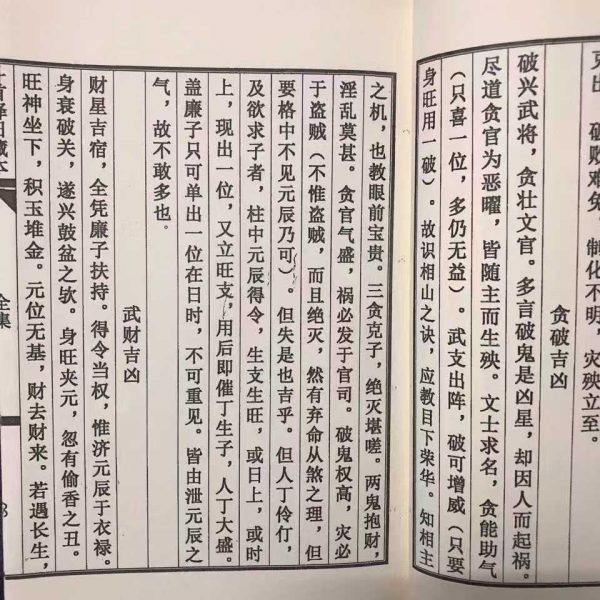 出，破败难免。制化不明，灾殃立至。
贪破吉凶
破兴武将，贪壮文官。多言破鬼是凶星，却因人而起祸。
尽道贪官为恶曜，皆随主而生殃。文士求名，贪能助气
（只喜一位，多仍无益）。武支出阵，破可增威（只要
身旺用一破）。故识相山之诀，应教目下荣华。知相主
之机，也教眼前宝贵。三贪克子，绝灭堪嗟。两鬼抱财，
淫乱莫甚。贪官气盛，祸必发于官司。破鬼权高，灾必
于盗贼（不惟盗贼，而且绝灭，然有弃命从煞之理，但
要格中不见元辰乃可）。但失是也吉乎。但人丁伶仃，
及欲求子者，柱中元辰得令，生支生旺，或日上，或时
上，现出一位，又立旺支，用后即催丁生子，人丁大盛。
盖廉子只可单出一位在日时，不可重见。皆由泄元辰之
气，故不敢多也。
武财吉凶
财星吉宿，全凭廉子扶持。得令当权，惟济元辰于衣禄。
身衰破关，遂兴鼓盆之欤。身旺夹元，忽有偷香之丑。
旺神坐下，积玉堆金。元位无基，财去财来。若遇长生，
择日藏本
全集